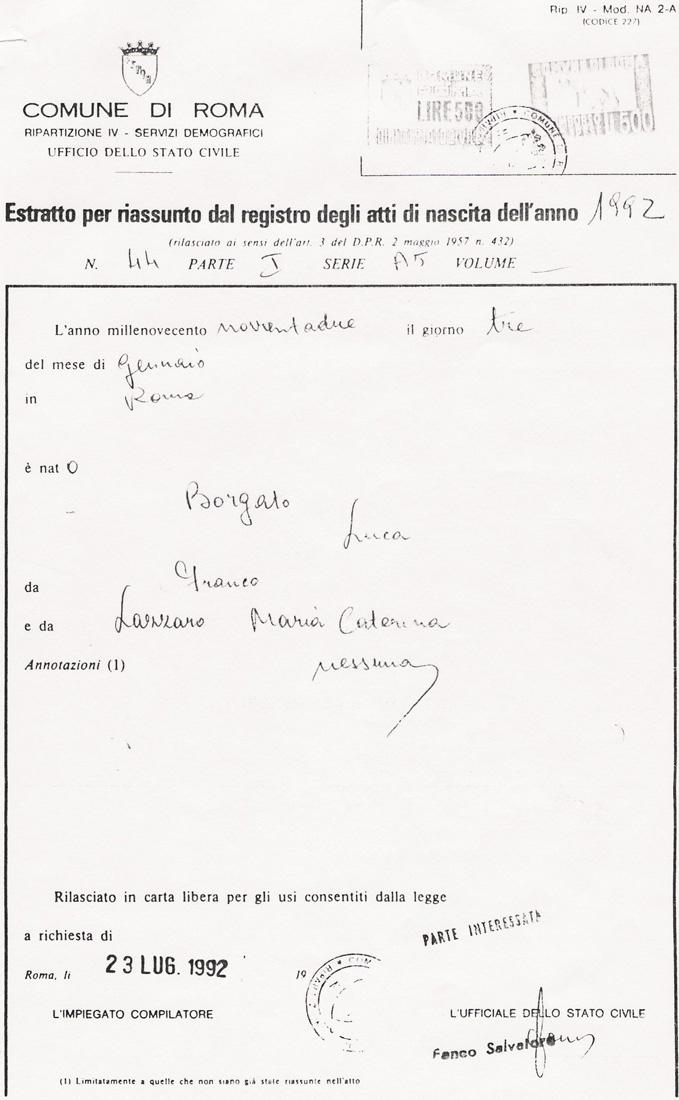 Rip. IV - Mod. NA 2-A
(CODICE 227)
COMUNE DI ROMA
RIPARTIZIONE IV - SERVIZI DEMOGRAFICI
UFFICIO DELLO STATO CIVILE
LIRE 500
Estratto per riassunto dal registro degli atti di nascita dell'anno 1992
(rilasciato ai sensi dell'art. 3 del D.P.R. 2 maggio 1957 n. 432)
N. 44 PARTE I SERIE A5 VOLUME
L'anno millenovecento novantadue il giorno tre
del mese di Gennaio
in Roma
è nat O
Borgato
Luca
da Franco
e da Lazzaro Maria Caterina
Annotazioni (1) nessuna
Rilasciato in carta libera per gli usi consentiti dalla legge
a richiesta di PARTE INTERESSATA
Roma, li 23 LUG. 1992 19
L'IMPIEGATO COMPILATORE L'UFFICIALE DELLO STATO CIVILE
Fenco Salvatore
(1) Limitatamente a quelle che non siano già state riassunte nell'atto